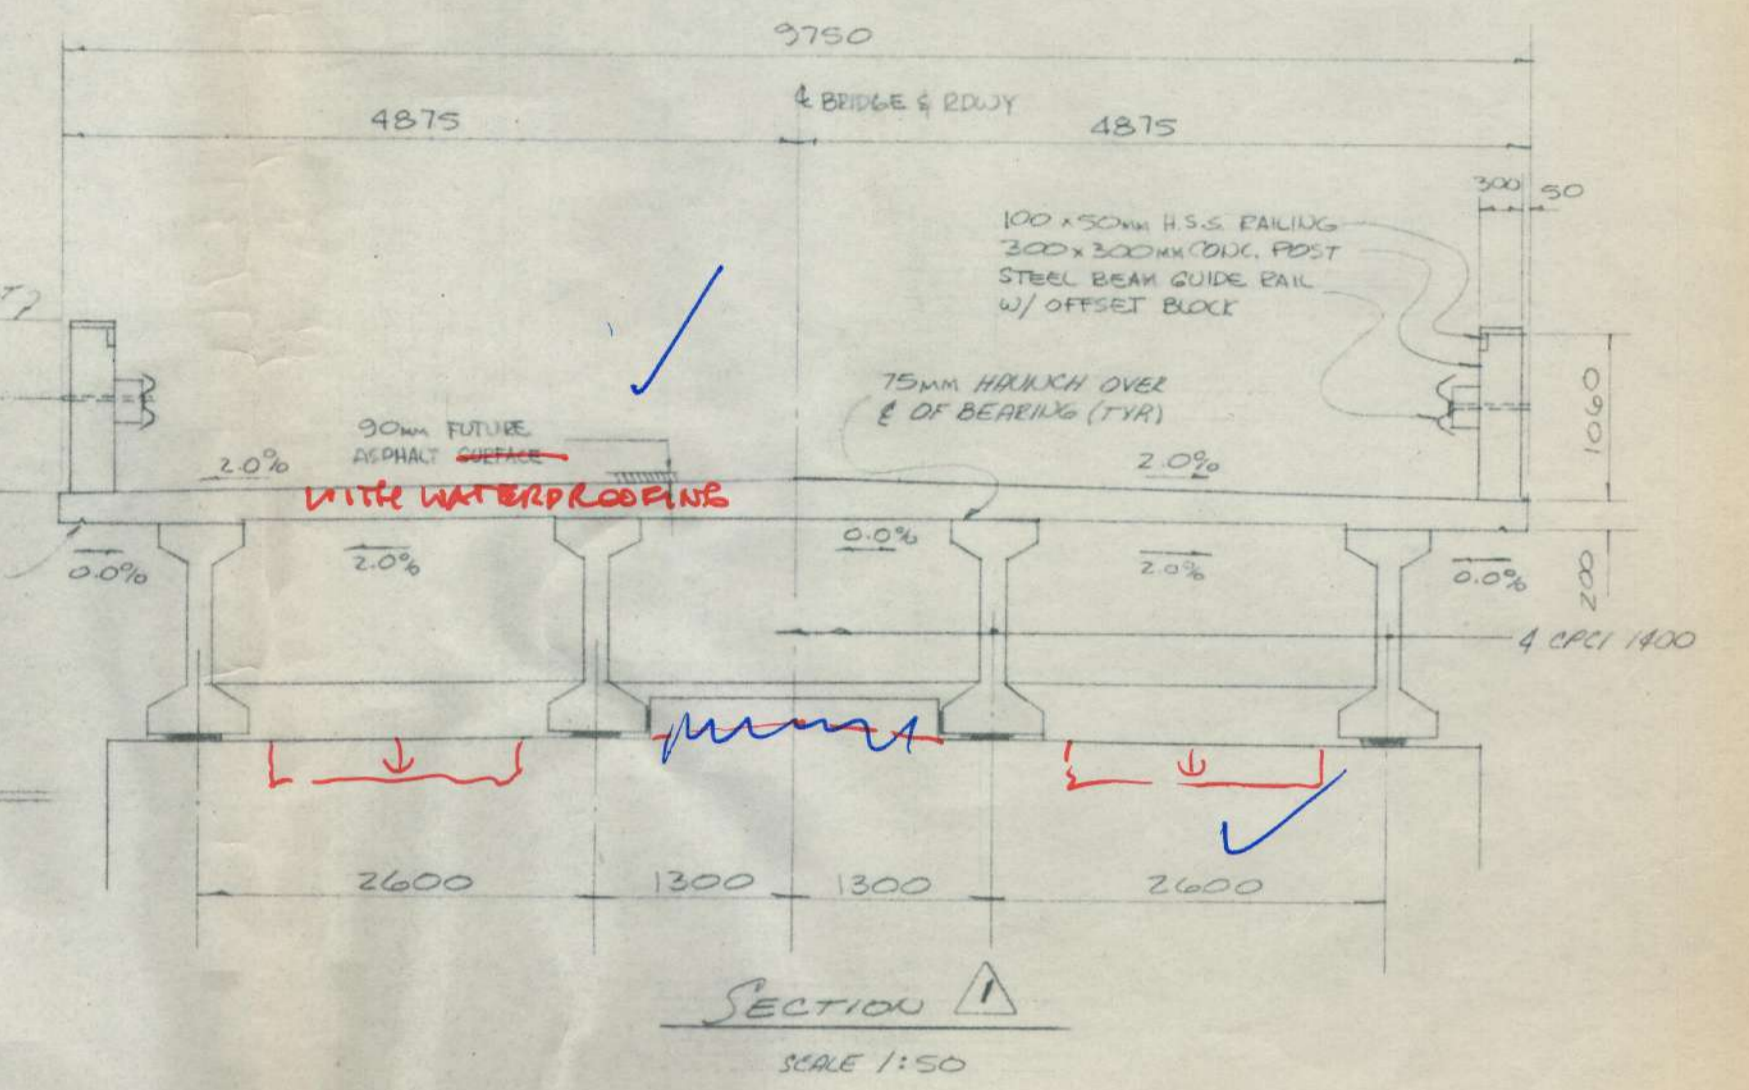 9750
℄ BRIDGE & RDWY
4875
4875
300
50
100 x 50mm H.S.S. RAILING
300 x 300mm CONC. POST
STEEL BEAM GUIDE RAIL
W/ OFFSET BLOCK
75mm HAUNCH OVER
℄ OF BEARING (TYP.)
1060
90mm FUTURE
ASPHALT SURFACE
WITH WATERPROOFING
2.0%
2.0%
0.0%
2.0%
0.0%
2.0%
0.0%
200
℄ CPCI 1400
2600
1300
1300
2600
SECTION 1
SCALE 1:50